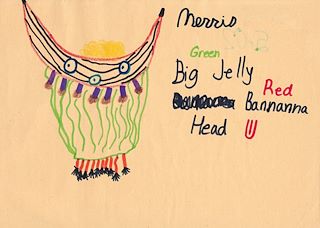 Merris
Green
Big Jelly
Red
Bannanna
Head